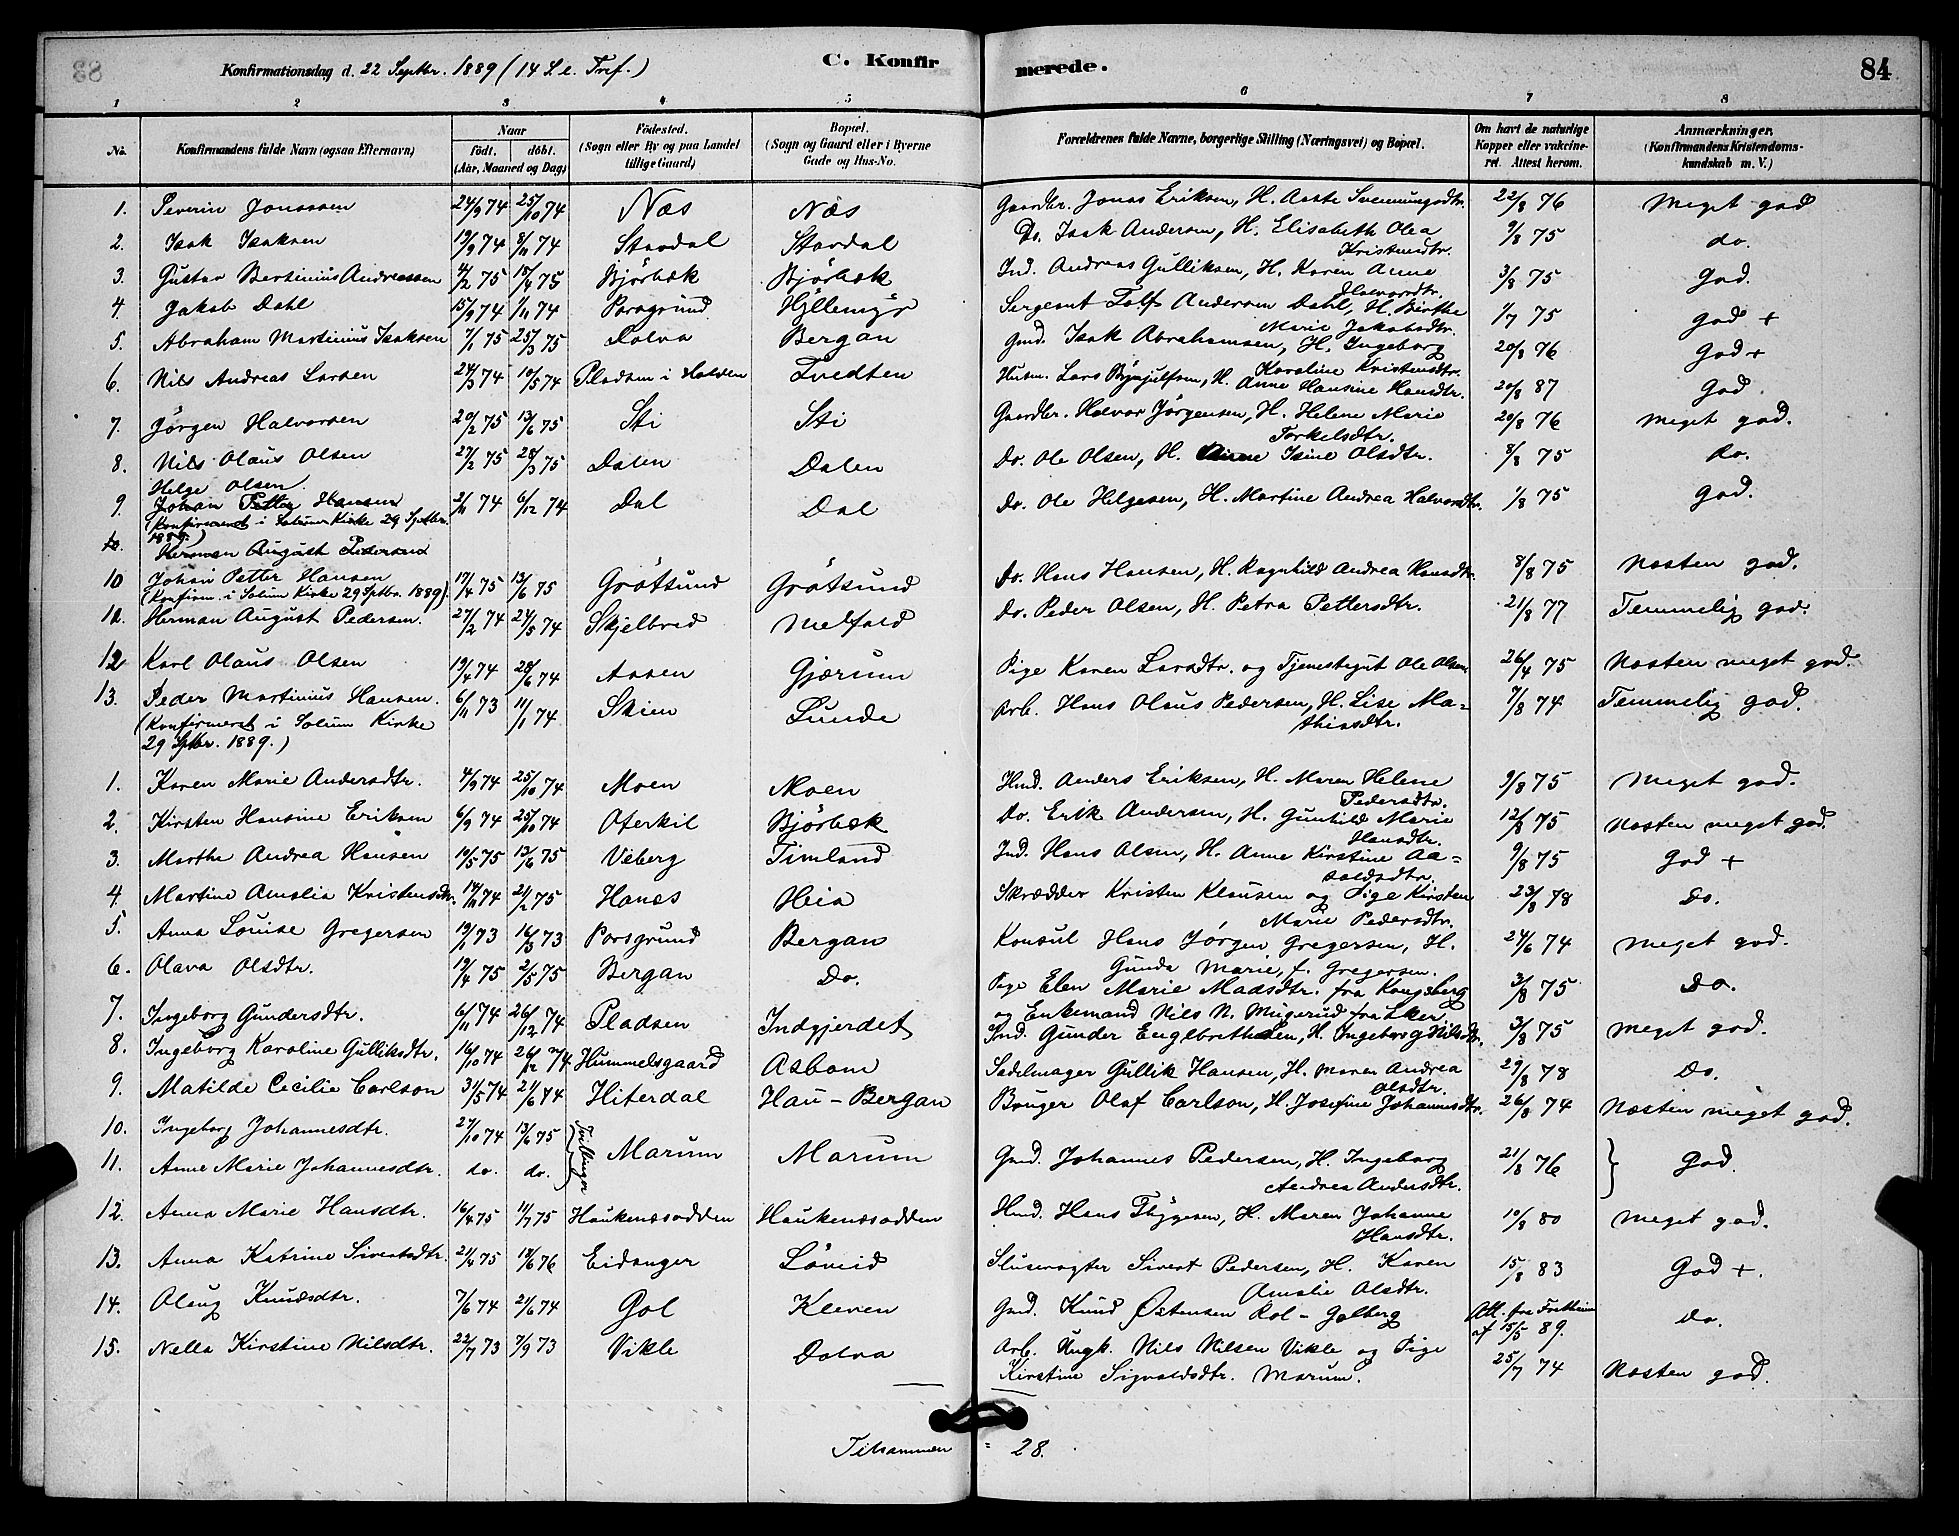 Konfirmationsdag d. 22 Septbr. 1889 (14 S. e. Tref.)
C. Konfirmerede.
84
1 2 3 4 5 6 7 8
No.
Konfirmandens fulde Navn (ogsaa Efternavn)
Naar
født. døbt.
(Aar, Maaned og Dag)
Födested.
(Sogn eller By og paa Landet tillige Gaard)
Bopæl.
(Sogn og Gaard eller i Byerne Gade og Hus-No.
Forældrenes fulde Navne, borgerlige Stilling (Næringsvei) og Bopæl.
Om havt de naturlige Kopper eller vakcineret. Attest herom.
Anmærkninger.
(Konfirmandens Kristendomskundskab m. V.)
1. Severin Jonassen 24/9 74 25/10 74 Næs Næs Gaardbr. Jonas Eriksen, H. Aaste Svenningsdtr. 22/8 76 Meget god
2. Isak Isaksen 19/9 74 8/11 74 Stordal Stordal Do. Isak Andersen, H. Elisabeth Olea Kristensdtr. 9/8 75 do.
3. Gustav Bertinius Andreassen 4/2 75 18/4 75 Bjørbæk Bjørbæk Ind. Andreas Gulliksen, H. Karen Anne Halvordtr. 3/8 75 God.
4. Jakob Dahl 15/9 74 1/11 74 Porsgrund Hjllemyr Sergeant Tolf Andersen Dahl, H. Birthe Marie Jakobsdtr. 1/7 75 God +
5. Abraham Martinius Isaksen 7/1 75 25/3 75 Dolva Bergan Gmd. Isak Abrahamsen, H. Ingeborg Karoline Kristensdtr. 20/8 76 God +
6. Nils Andreas Larsen 24/3 74 10/5 74 Pladsen i Holden Tvedten Husm. Lars Brynjulfsen, H. Anne Hansine Hansdtr. 20/8 87 God
7. Jørgen Halvorsen 20/2 75 13/6 75 Sti Sti Gaardbr. Halvor Jørgensen, H. Helene Marie Torkelsdtr. 20/8 76 Meget god.
8. Nils Olaus Olsen 27/2 75 28/3 75 Dalen Dalen Do. Ole Olsen, H. Anne Isine Olsdtr. 8/8 75 do.
Helge Olsen
9. Johan Petter Hansen 2/11 74 6/12 74 Dal Dal Do. Ole Helgesen, H. Martine Andrea Halvorsdtr. 1/8 75 God.
(Konfirmeret i Solum Kirke 29 Septbr. 1889.)
10. Herman August Pedersen
10 Johan Petter Hansen 17/4 75 13/6 75 Grøtsund Grøtsund Do. Hans Hansen, H. Ragnhild Andrea Hansdtr. 8/8 75 Næsten god.
(Konfirm. i Solum Kirke 29 Septbr. 1889)
11. Herman August Pedersen. 27/2 74 24/5 74 Skjelbred Melfald Do. Peder Olsen, H. Petra Pettersdtr. 21/8 77 Temmelig god.
12 Karl Olaus Olsen 19/4 74 28/6 74 Aasen Gjærum Pige Karen Larsdtr. og Tjenestegut Ole Olsen 26/4 75 Næsten meget god.
13. Peder Martinius Hansen. 6/11 73 11/1 74 Skien Lunde Arb. Hans Olaus Pedersen, H. Lise Mathiasdtr. 7/8 74 Temmelig god.
(Konfirmeret i Solum Kirke
29 Septbr. 1889.)
1. Karen Marie Andersdtr. 4/9 74 25/10 74 Moen Moen Hmd. Anders Eriksen, H. Maren Helene Pedersdtr. 9/8 75 Meget god.
2. Kirsten Hansine Eriksen 6/9 74 25/10 74 Oterkil Bjørbæk Do. Erik Andersen, H. Gunhild Marie Hansdtr. 12/8 75 Næsten meget god.
3. Marthe Andrea Hansen 10/5 75 13/6 75 Veberg Timland Ind. Hans Olsen, H. Anne Kirstine Aasoldsdtr. 9/8 75 God +
4. Martine Amalia Kristensdtr. 14/11 74 21/2 75 Hanes Heia Skrædder Kristen Klausen og Pige Kirsten Marie Pedersdtr. 23/8 78 Do.
5. Anna Louise Gregersen 19/1 73 16/3 73 Porsgrund Bergan Konsul Hans Jørgen Gregersen, H. Gunda Marie, f. Gregersen. 24/6 74 Meget god.
6. Olava Olsdtr. 19/4 75 2/5 75 Bergan Do. Pige Elen Marie Madsdtr. fra Kongsberg og Enkemand Nils N. Mugerud fra Eker 3/8 75 Do.
7. Ingeborg Gundersdtr. 6/11 74 26/12 74 Pladsen Indgjerdet Ind. Gunder Englbrethsen, H. Ingeborg Nilsdtr. 3/8 75 Meget god.
8. Ingeborg Karoline Gulliksdtr. 16/10 74 26/12 74 Hummelsgaard Asbom Sadelmager Gullik Hansen, H. Maren Andrea Olsdtr. 29/8 78 Do.
9. Matilde Cecilie Carlson 31/5 74 21/6 74 Hiterdal Hau-Bergan Bruger Olaf Carlson, H. Josefine Johannesdtr. 26/8 74 Næsten meget god.
10. Ingeborg Johannesdtr. 27/10 74 13/6 75 Tvillinger Marum Marum Gmd. Johannes Pedersen, H. Ingeborg Andrea Andersdtr. 21/8 76 God.
11. Anne Marie Johannesdtr. do. do.
12. Anna Marie Hansdtr. 16/4 75 11/7 75 Haukenæsodden Haukenæsodden Hmd. Hans Thygesen, H. Maren Johanne Hansdtr. 10/8 80 Meget god.
13. Anna Katrine Sivertsdtr. 21/4 75 18/6 76 Eidanger Løveid Slusevogter Sivert Pedersen, H. Karen Amalie Olsdtr. 15/8 83 God +.
14. Olaug Knudsdtr. 7/6 74 21/6 74 Gol Kleven Gmd. Knud Østensen Rol-Golberg Att. fra Fretheim af 15/5 89. do.
15. Nella Kirstine Nilsdtr. 22/7 73 7/9 73 Vikle Dolva Arb. Ungk. Nils Nilsen Vikle og Pige Kirstine Sigvaldsdtr. Marum. 25/7 74 Næsten god.
Tilsammen = 28.